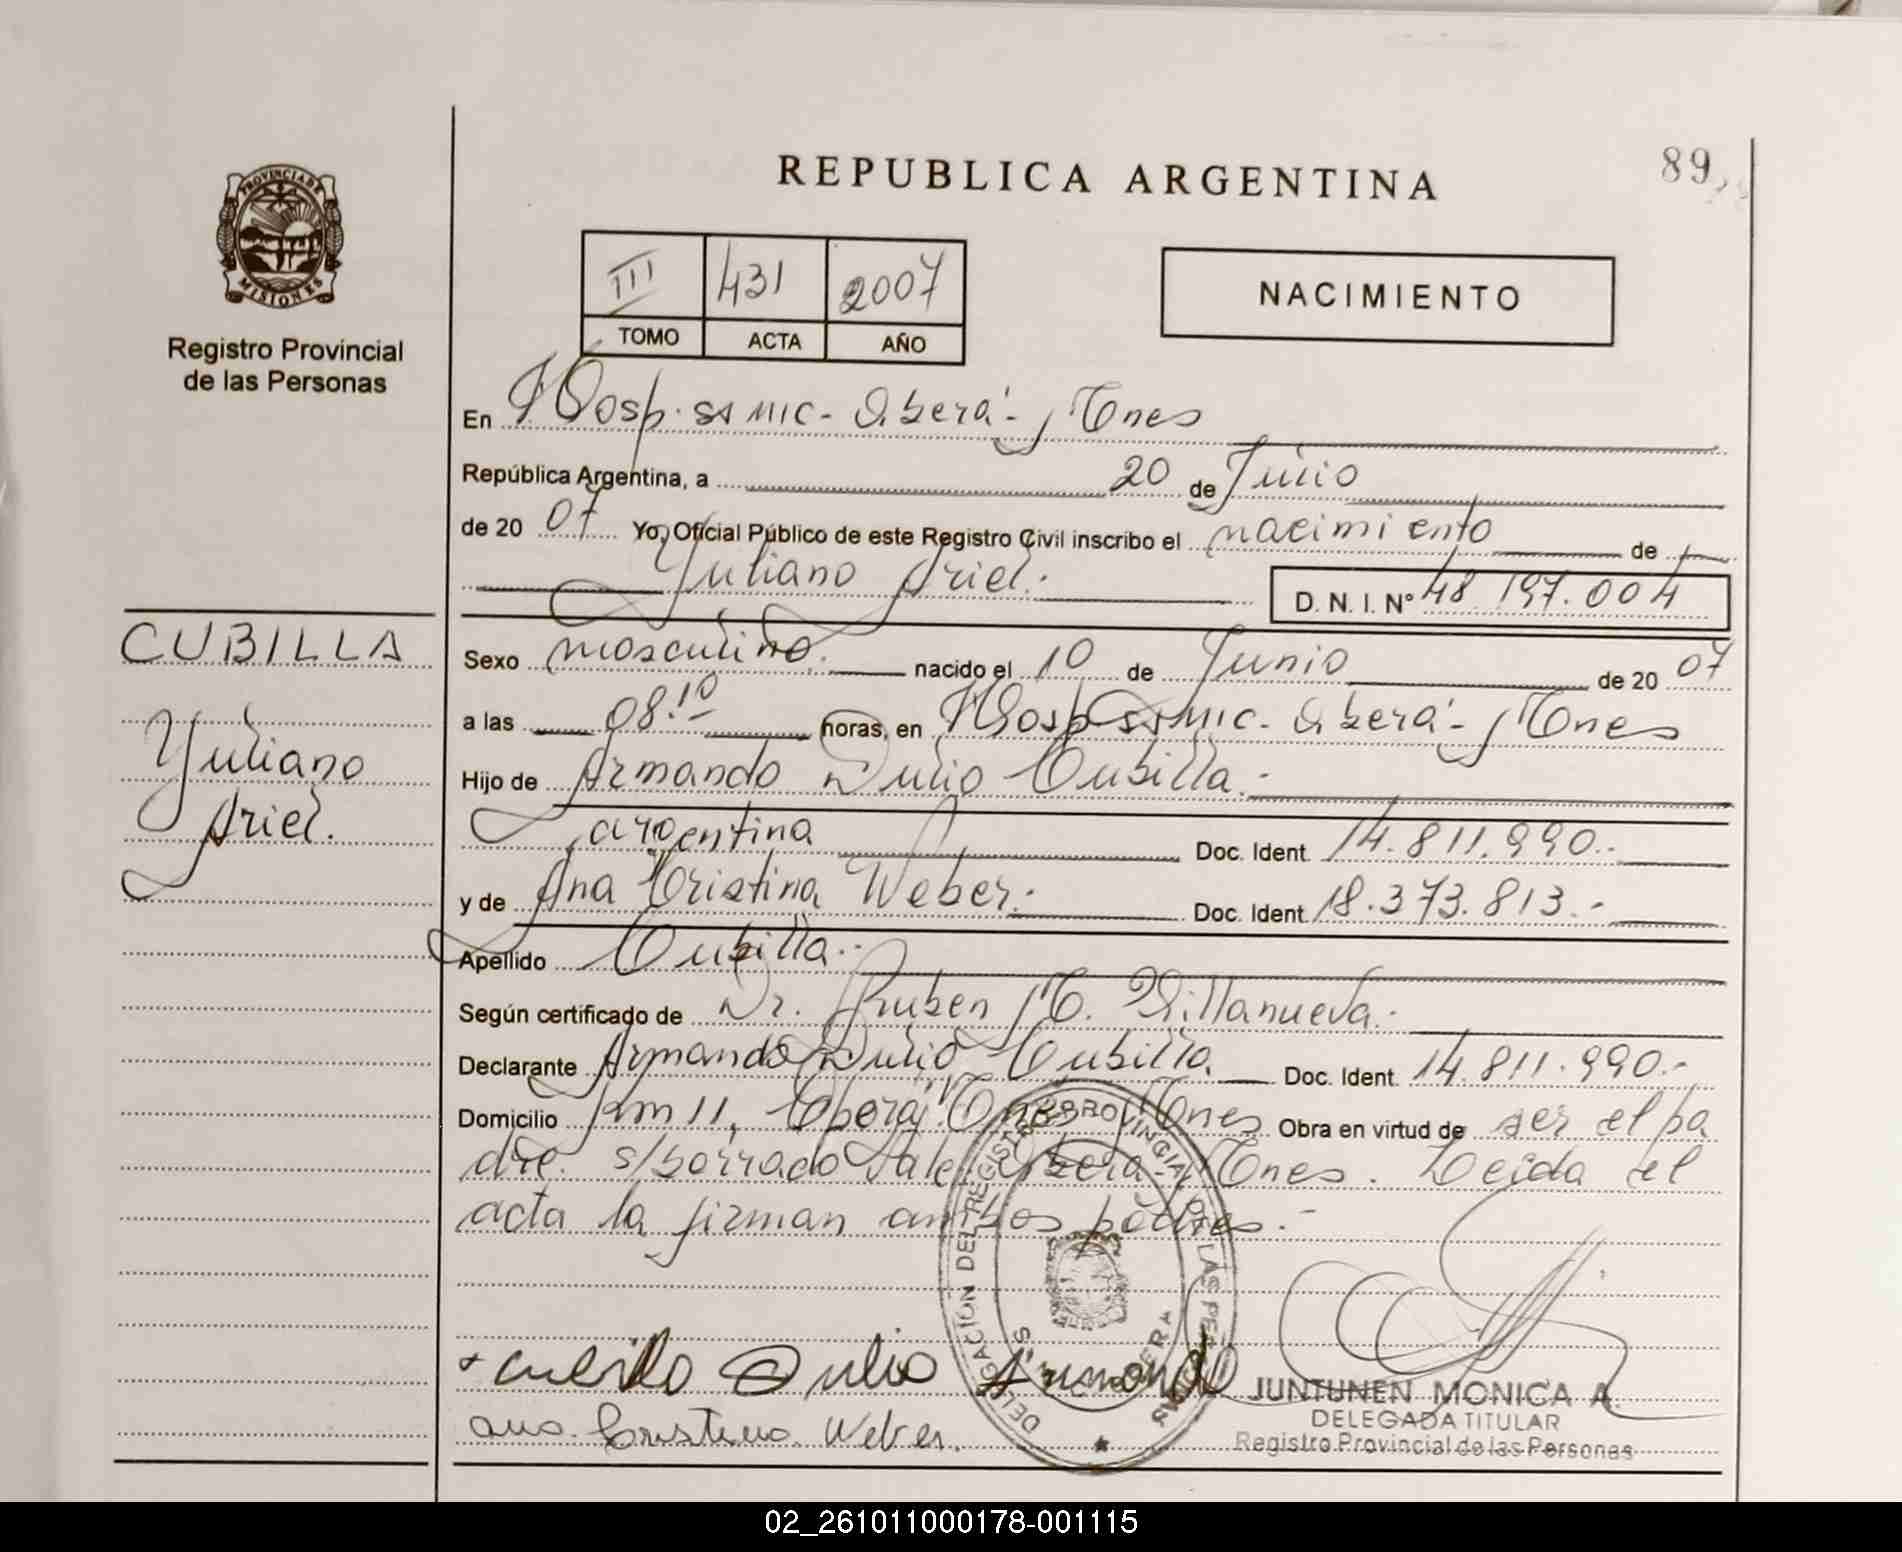 REPUBLICA ARGENTINA
89
PROVINCIA DE MISIONES
Registro Provincial
de las Personas
III 431 2007
TOMO ACTA AÑO
NACIMIENTO
En Hosp. SS MIC - Oberá - Mnes
República Argentina, a 20 de Junio
de 20 07 Yo, Oficial Público de este Registro Civil inscribo el nacimiento de
Yuliano Ariel.
D. N. I. Nº 48.197.004
CUBILLA
Yuliano
Ariel.
Sexo masculino. nacido el 10 de Junio de 20 07
a las 08.10 horas, en Hosp SS MIC - Oberá - Mnes
Hijo de Armando Dulio Cubilla.-
argentina Doc. Ident. 14.811.990.-
y de Ana Cristina Weber.- Doc. Ident. 18.373.813.-
Apellido Cubilla.-
Según certificado de Dr. Ruben M. Villanueva.-
Declarante Armando Dulio Cubilla. Doc. Ident. 14.811.990.-
Domicilio Km 11, Oberá, Mnes Obra en virtud de ser el pa
dre. s/borrado vale Oberá - Mnes. Leida el
acta la firman ambos padres.-
DELEGACION DEL REGISTRO PROVINCIAL DE LAS PER
cubilla Dulio Armando
Ana Cristina Weber.
JUNTUNEN MONICA A.
DELEGADA TITULAR
Registro Provincial de las Personas
02_261011000178-001115